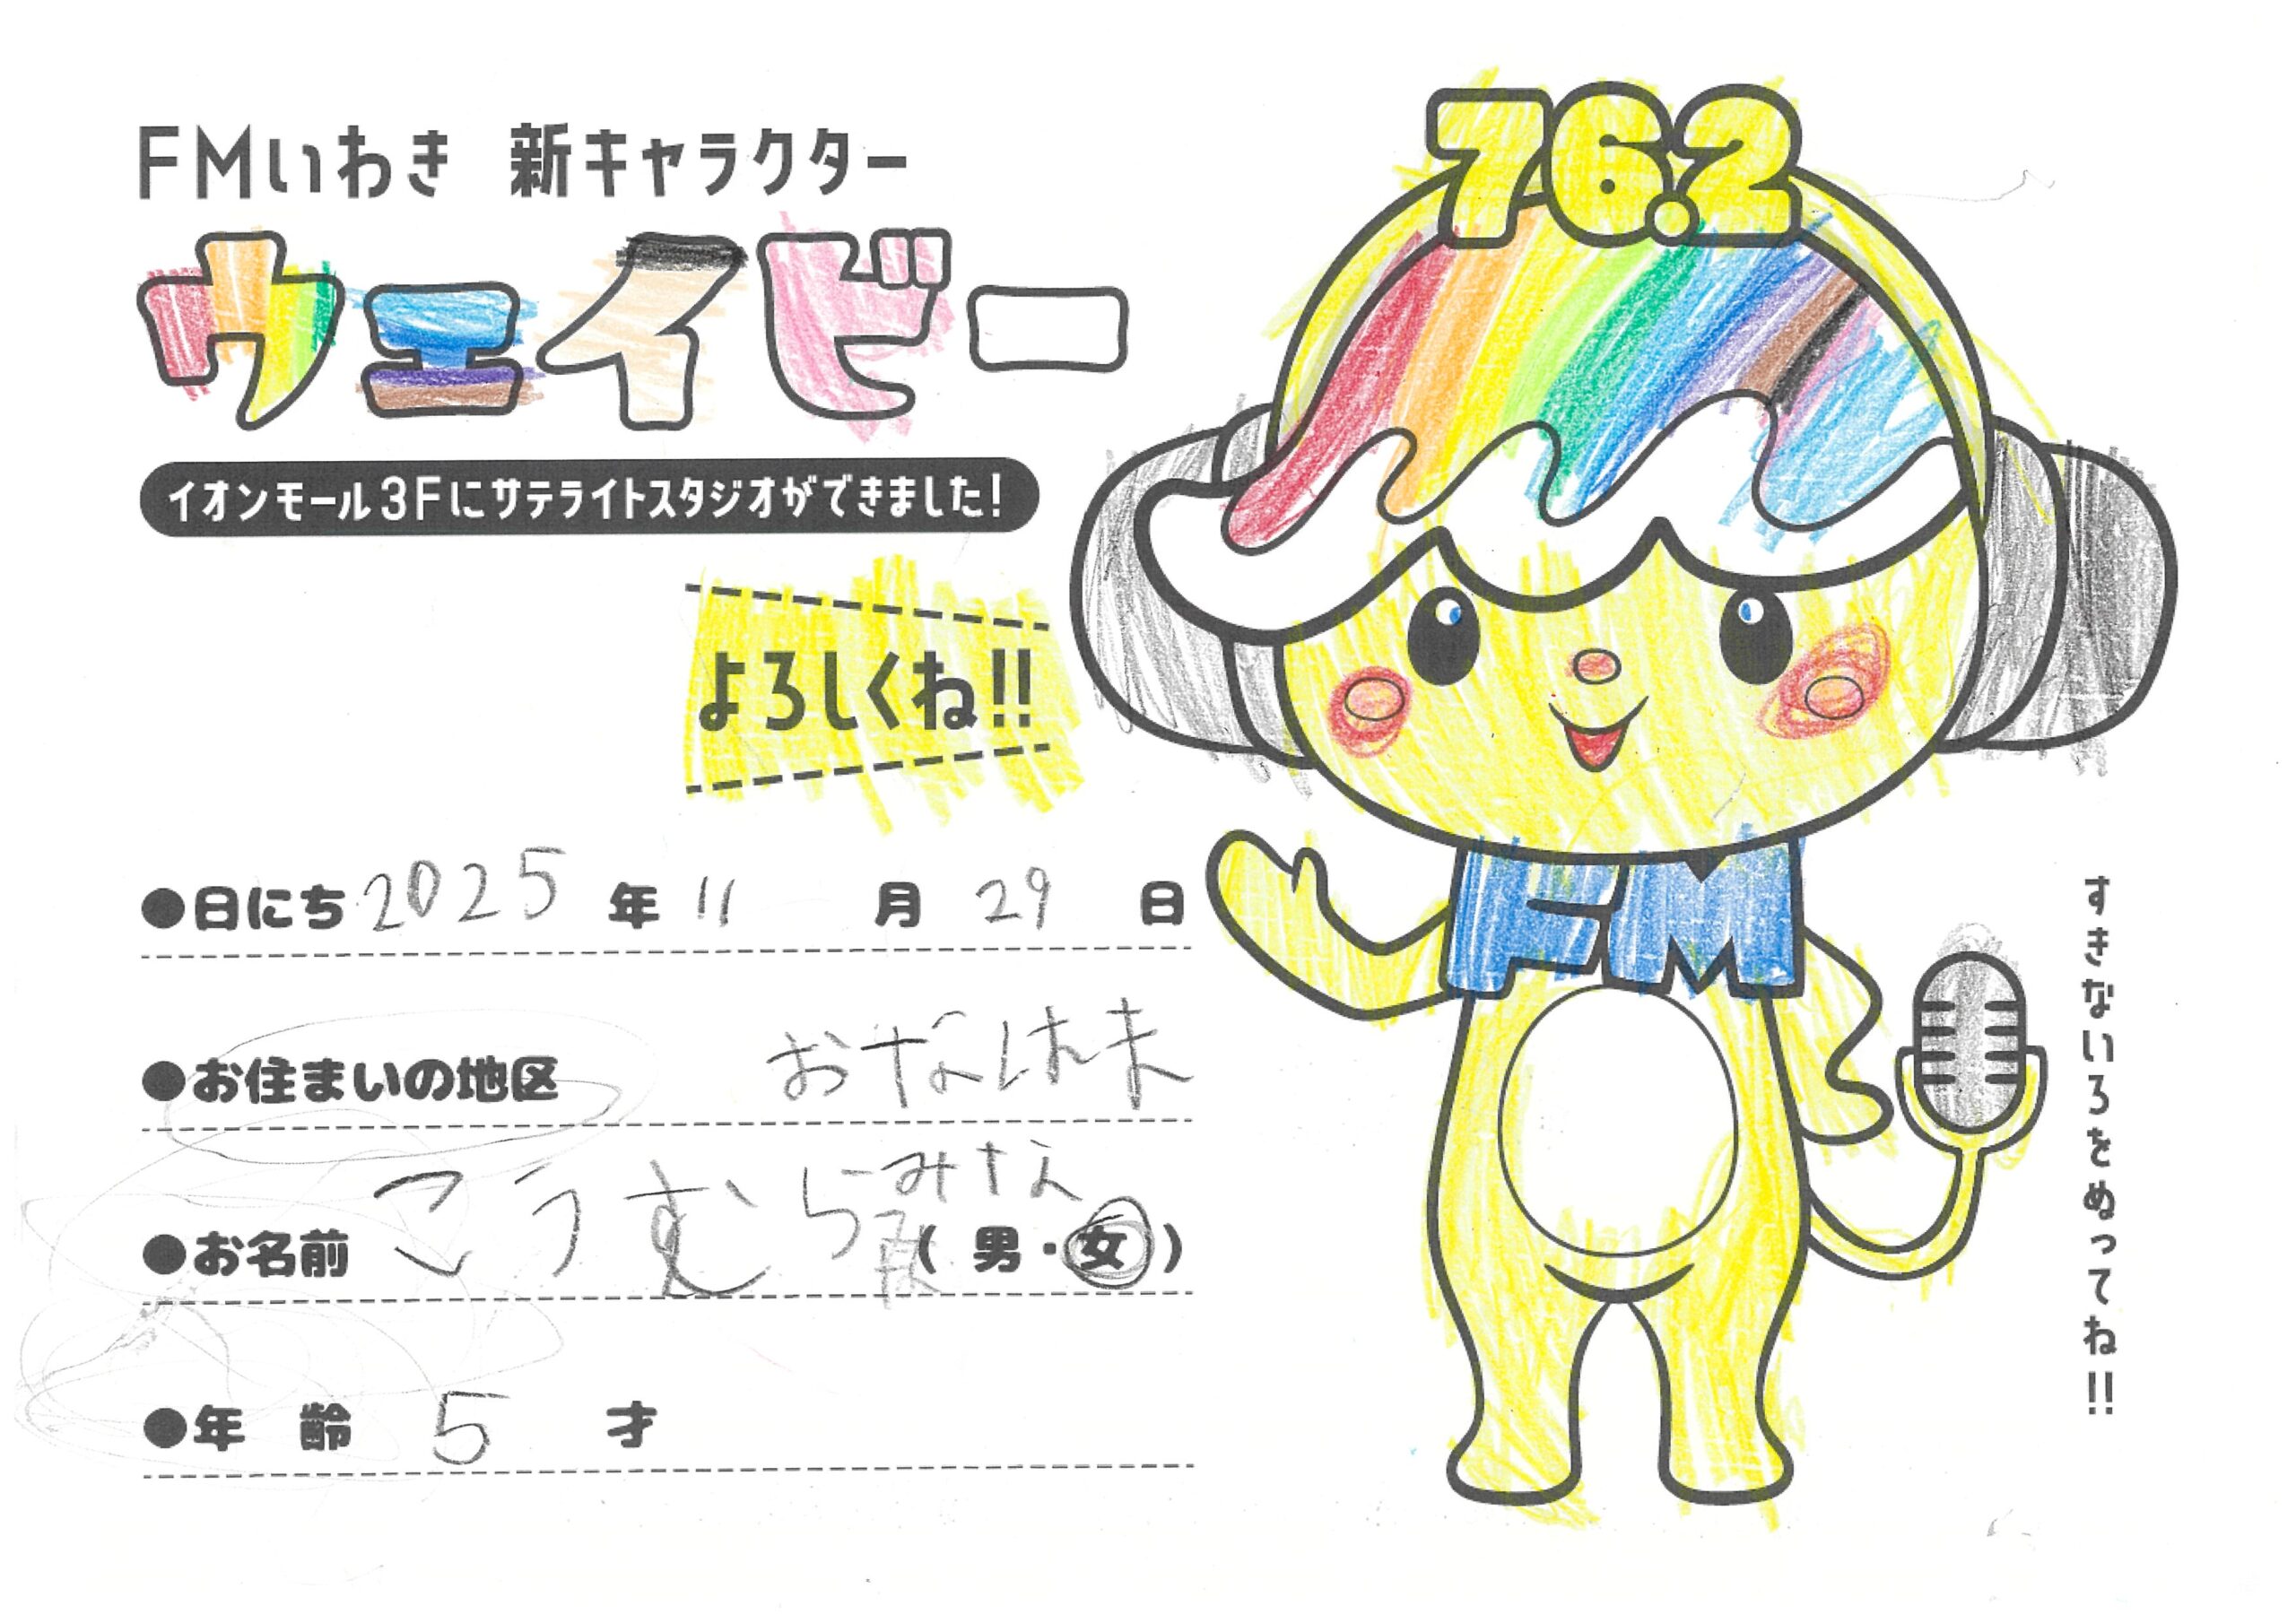 76.2
FMいわき 新キャラクター
ウェイビー
イオンモール3Fにサテライトスタジオができました!
よろしくね!!
●日にち 2025 年 11 月 29 日
●お住まいの地区 おなはま
●お名前 こうむら みな ( 男・女 )
●年 齢 5 才
FM
すきないろをぬってね!!